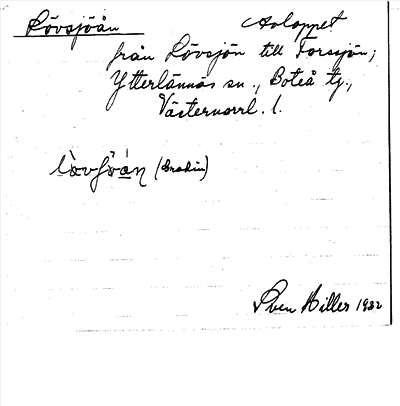 Lövsjöån Avloppet
från Lövsjön till Forssjön;
Ytterlännäs sn., Boteå tg.,
Västernorrl. l.
Sven Hiller 1932